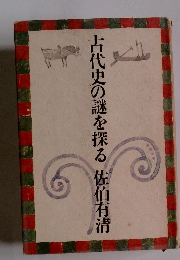 古代史の謎を探る 佐伯有清